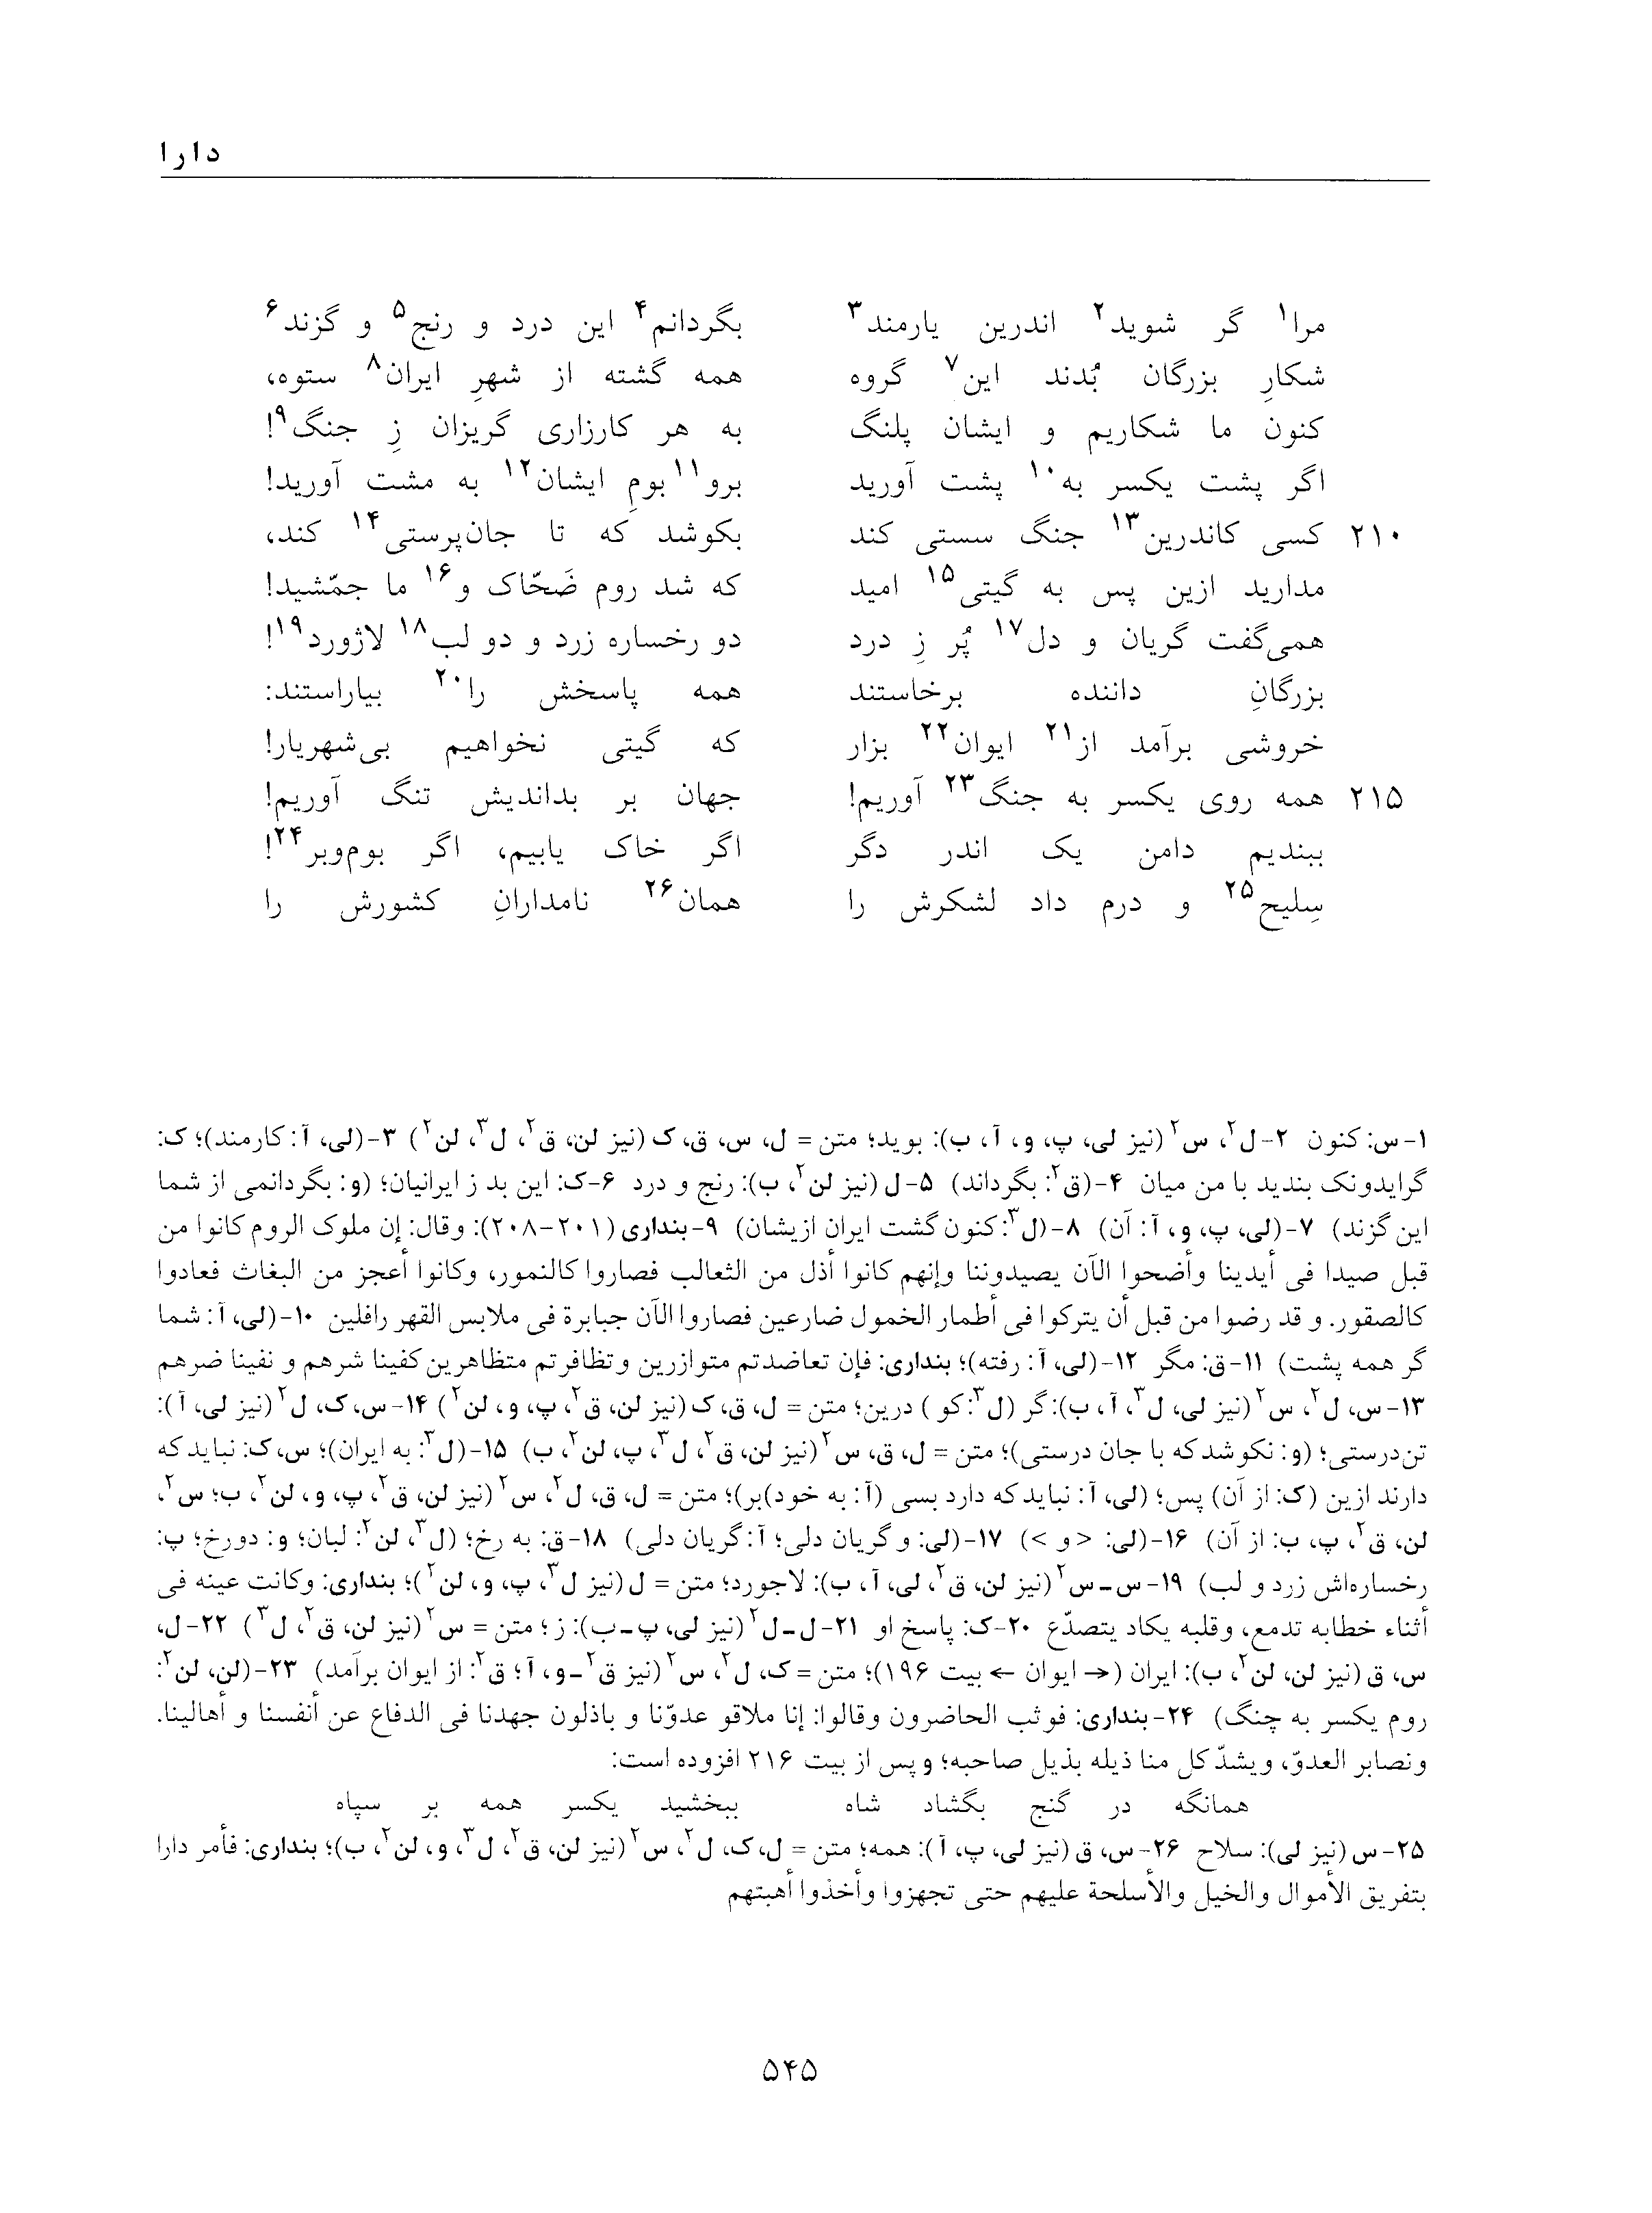 دارا
مرا۱ گر شوید۲ اندرین یارمند۳ بگردانم۴ این درد و رنج۵ و گزند۶
شکارِ بزرگان بُدند این۷ گروه همه گشته از شهرِ ایران۸ ستوه،
کنون ما شکاریم و ایشان پلنگ به هر کارزاری گریزان زِ جنگ۹!
اگر پشت یکسر به۱۰ پشت آورید برو۱۱ بومِ ایشان۱۲ به مشت آورید!
۲۱۰ کسی کاندرین۱۳ جنگ سستی کند بکوشد که تا جان‌پرستی۱۴ کند،
مدارید ازین پس به گیتی۱۵ امید که شد روم ضَحّاک و۱۶ ما جمّشید!
همی‌گفت گریان و دل۱۷ پُر زِ درد دو رخساره زرد و دو لب۱۸ لاژورد۱۹!
بزرگانِ داننده برخاستند همه پاسخش را۲۰ بیاراستند:
خروشی برآمد از۲۱ ایوان۲۲ بزار که گیتی نخواهیم بی‌شهریار!
۲۱۵ همه روی یکسر به جنگ۲۳ آوریم! جهان بر بداندیش تنگ آوریم!
ببندیم دامن یک اندر دگر اگر خاک یابیم، اگر بوم‌وبر۲۴!
سِلیح۲۵ و درم داد لشکرش را همان۲۶ نامدارانِ کشورش را
۱-س: کنون ۲-ل۲، س۲ (نیز لی، پ، و، آ، ب): بوید؛ متن = ل، س، ق، ک (نیز لن، ق۲، ل۳، لن۲) ۳-(لی، آ: کارمند)؛ ک:
گرایدونک بندید با من میان ۴-(ق۲: بگرداند) ۵-ل (نیز لن۲، ب): رنج و درد ۶-ک: این بد ز ایرانیان؛ (و: بگردانمی از شما
این گزند) ۷-(لی، پ، و، آ: آن) ۸-(ل۳: کنون گشت ایران ازیشان) ۹-بنداری (۲۰۱-۲۰۸): وقال: إن ملوک الروم کانوا من
قبل صیدا فی أیدینا وأضحوا الآن یصیدوننا وإنهم کانوا أذل من الثعالب فصاروا کالنمور، وکانوا أعجز من البغاث فعادوا
کالصقور. و قد رضوا من قبل أن یترکوا فی أطمار الخمول ضارعین فصاروا الآن جبابرة فی ملابس القهر رافلین ۱۰-(لی، آ: شما
گر همه پشت) ۱۱-ق: مگر ۱۲-(لی، آ: رفته)؛ بنداری: فإن تعاضدتم متوازرین وتظافرتم متظاهرین کفینا شرهم و نفینا ضرهم
۱۳-س، ل۲، س۲ (نیز لی، ل۳، آ، ب): گر (ل۳: کو) درین؛ متن = ل، ق، ک (نیز لن، ق۲، پ، و، لن۲) ۱۴-س، ک، ل۲ (نیز لی، آ):
تن‌درستی؛ (و: نکوشد که با جان درستی)؛ متن = ل، ق، س۲ (نیز لن، ق۲، ل۳، پ، لن۲، ب) ۱۵-(ل۳: به ایران)؛ س، ک: نباید که
دارند ازین (ک: از آن) پس؛ (لی، آ: نباید که دارد بسی (آ: به خود)بر)؛ متن = ل، ق، ل۲، س۲ (نیز لن، ق۲، پ، و، لن۲، ب؛ س۲،
لن، ق۲، پ، ب: از آن) ۱۶-(لی: <و>) ۱۷-(لی: و گریان دلی؛ آ: گریان دلی) ۱۸-ق: به رخ؛ (ل۳، لن۲: لبان؛ و: دورخ؛ پ:
رخساره‌اش زرد و لب) ۱۹-س-س۲ (نیز لن، ق۲، لی، آ، ب): لاجورد؛ متن = ل (نیز ل۳، پ، و، لن۲)؛ بنداری: وکانت عینه فی
أثناء خطابه تدمع، وقلبه یکاد یتصدّع ۲۰-ک: پاسخ او ۲۱-ل-ل۲ (نیز لی، پ-ب): ز؛ متن = س۲ (نیز لن، ق۲، ل۳) ۲۲-ل،
س، ق (نیز لن، لن۲، ب): ایران (→ ایوان ← بیت ۱۹۶)؛ متن = ک، ل۲، س۲ (نیز ق۲-و، آ؛ ق۲: از ایوان برآمد) ۲۳-(لن، لن۲:
روم یکسر به چنگ) ۲۴-بنداری: فوثب الحاضرون وقالوا: إنا ملاقو عدوّنا و باذلون جهدنا فی الدفاع عن أنفسنا و أهالینا.
ونصابر العدوّ، ویشدّ کل منا ذیله بذیل صاحبه؛ و پس از بیت ۲۱۶ افزوده است:
همانگه در گنج بگشاد شاه ببخشید یکسر همه بر سپاه
۲۵-س (نیز لی): سلاح ۲۶-س، ق (نیز لی، پ، آ): همه؛ متن = ل، ک، ل۲، س۲ (نیز لن، ق۲، ل۳، و، لن۲، ب)؛ بنداری: فأمر دارا
بتفریق الأموال والخیل والأسلحة علیهم حتی تجهزوا وأخذوا أهبتهم
۵۴۵